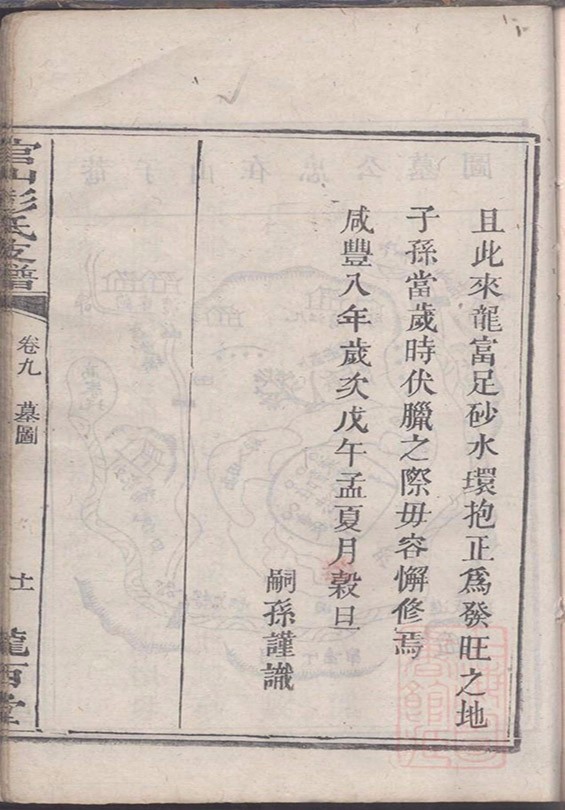 且此來龍富足砂水環抱正爲發旺之地
子孫當歲時伏臘之際毋容懈修焉
咸豐八年歲次戊午孟夏月穀旦
嗣孫謹識
官山彭氏支譜
卷九
墓圖
十一
隴西堂
圖墓公忠在山子巷